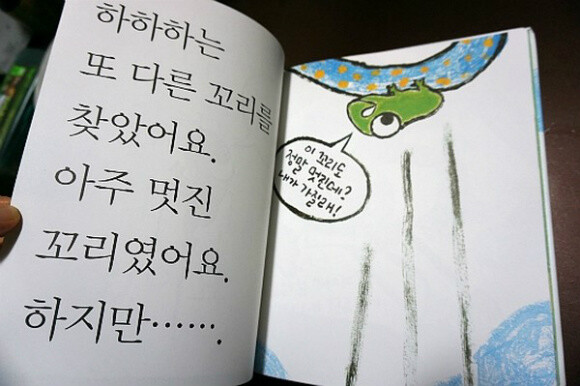 하하하는
또 다른 꼬리를
찾았어요.
아주 멋진
꼬리였어요.
하지만…….
이 꼬리도
정말 멋진데?
내가 가질래!